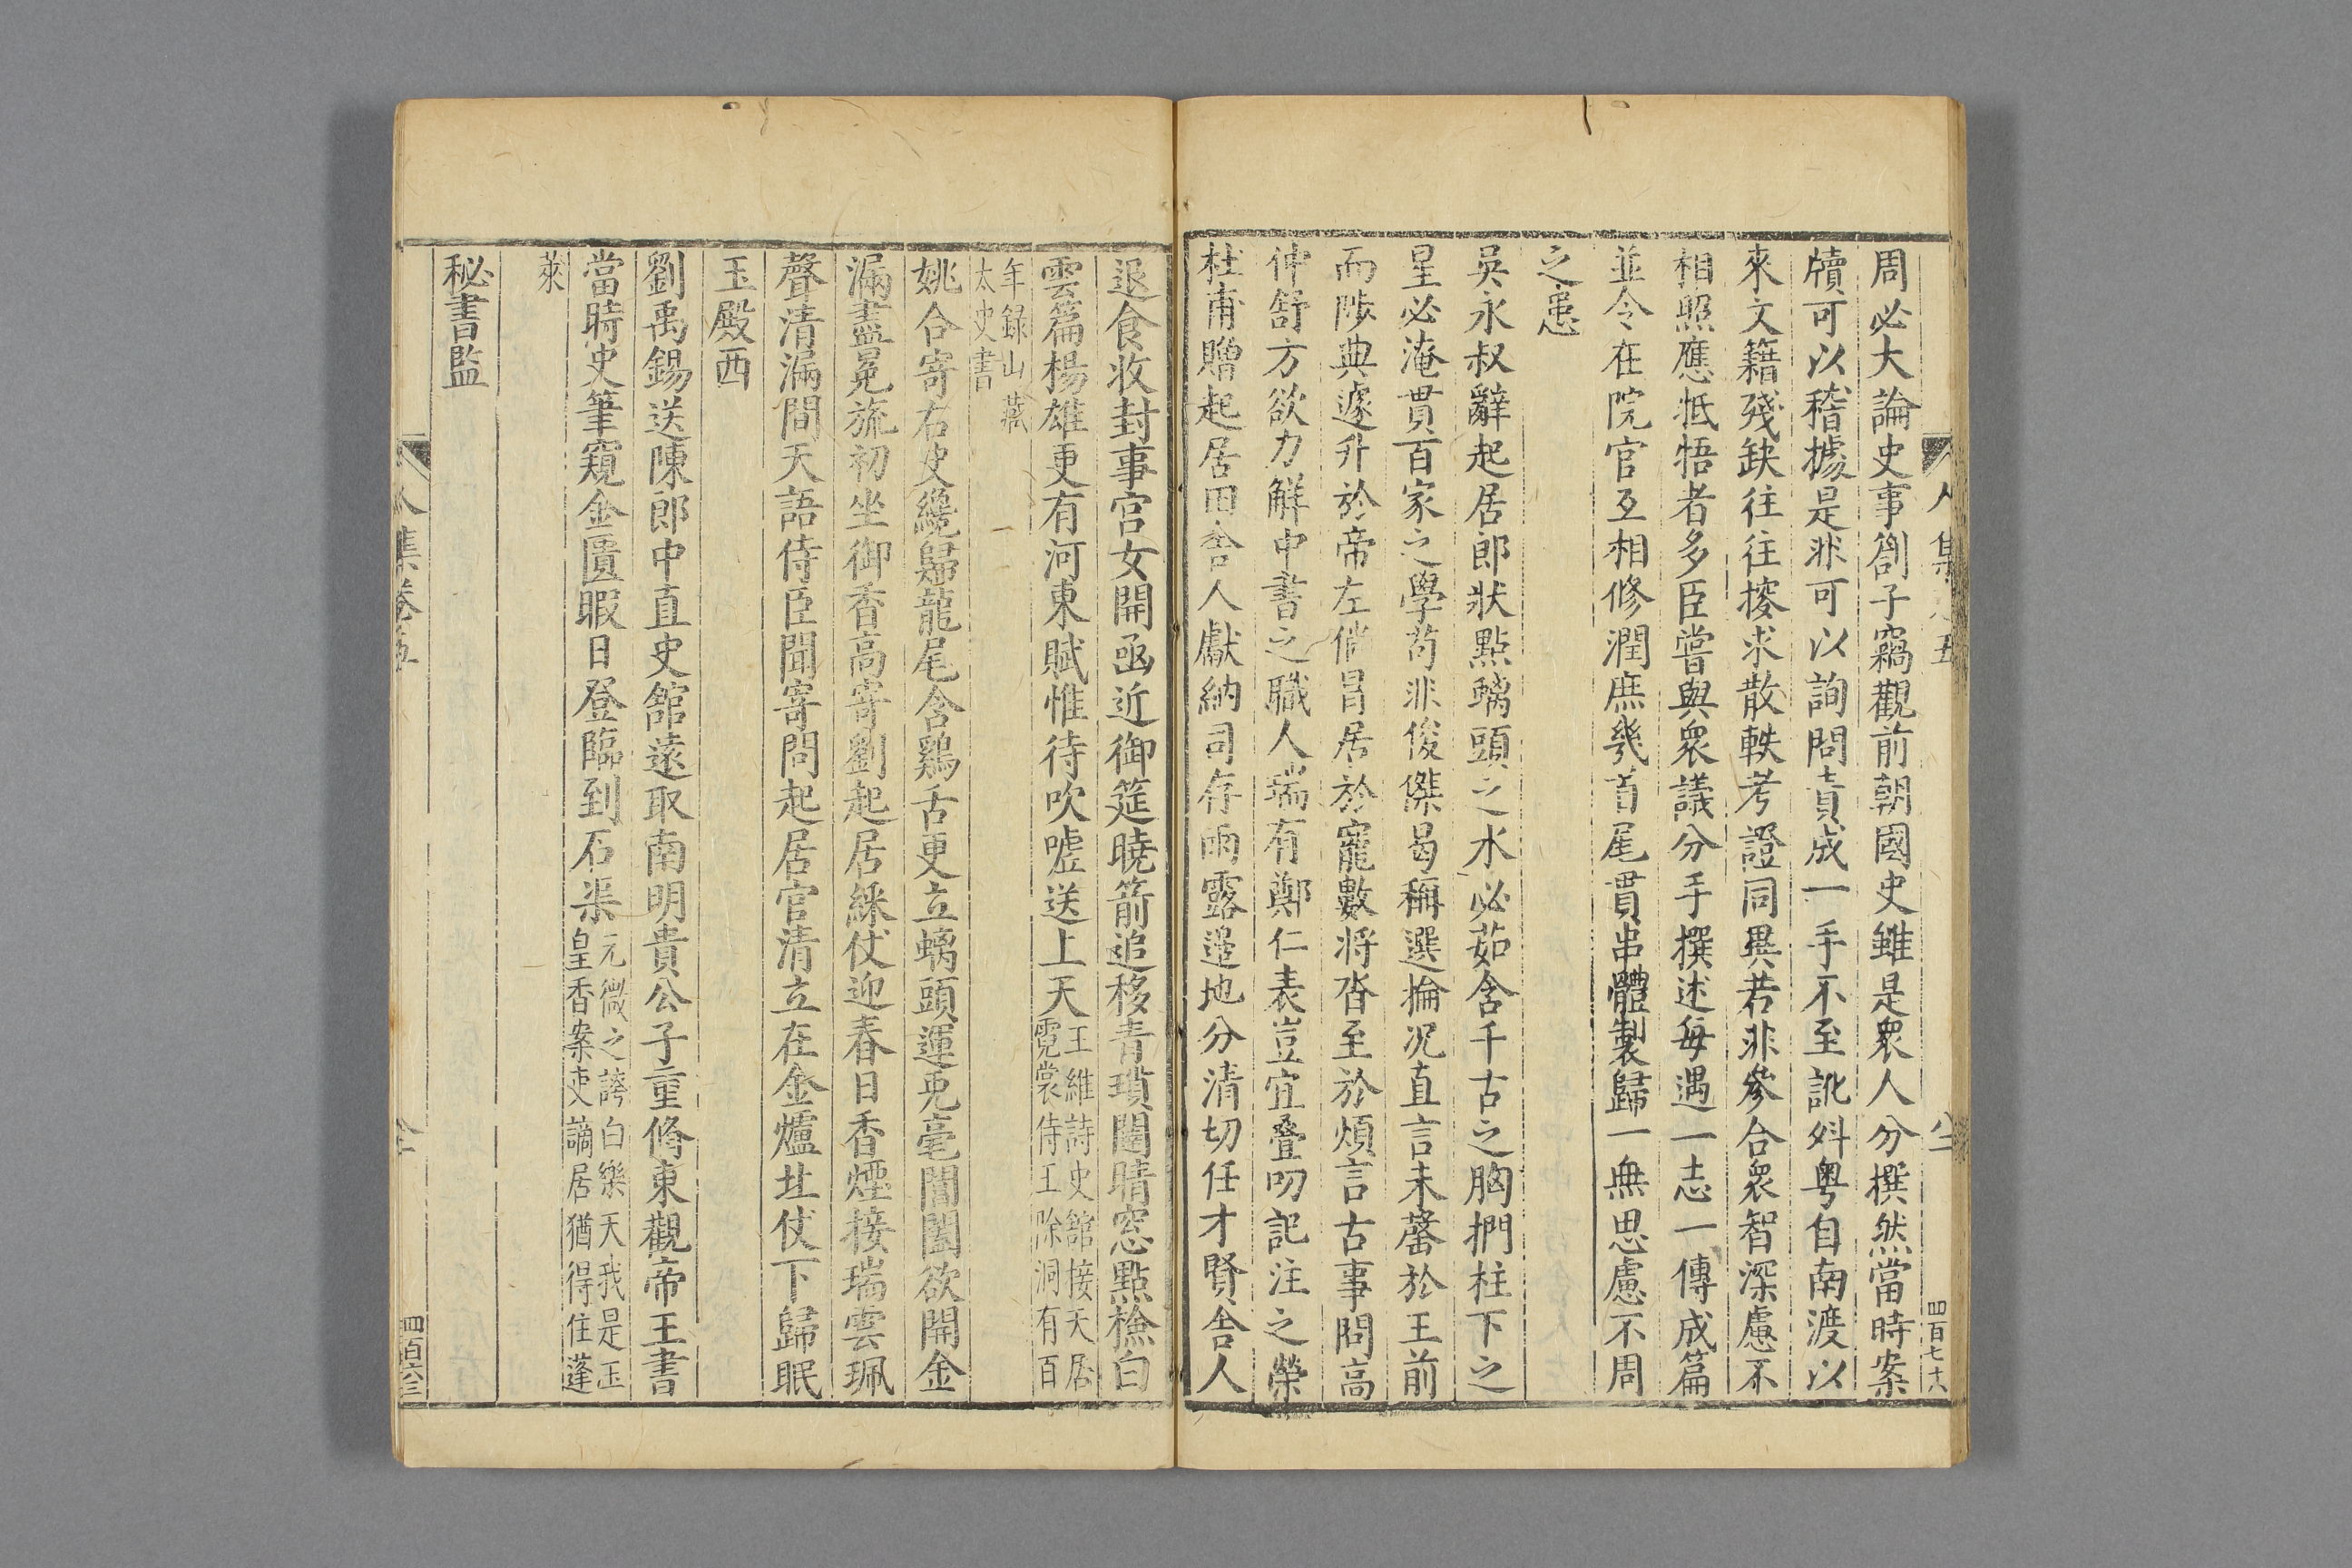 周必大論史事劄子竊觀前朝國史雖是衆人分撰然當時案
牘可以稽據是非可以詢問責成一手不至訛舛粤自南渡以
來文籍殘缺往往搜求散軼考證同異若非參合衆智深慮不
相照應牴牾者多臣嘗與衆議分手撰述每遇一志一傳成篇
並令在院官互相修潤庶幾首尾貫串體製歸一無思慮不周
之患
吳永叔辭起居郎狀點螭頭之水必茹含千古之胸捫柱下之
星必淹貫百家之學苟非俊傑曷稱選掄况直言未罄於王前
而陟典遽升於帝左倘冒居於寵數將沓至於煩言古事問高
仲舒方欲力辭中書之職人瑞有鄭仁表豈宜叠叨記注之榮
杜甫贈起居田舍人獻納司存雨露邊地分清切任才賢舍人
退食收封事宫女開函近御筵曉箭追移青瑣闥晴窓點檢白
雲篇楊雄更有河東賦惟待吹嘘送上天
王維詩史舘接天居
霓裳侍玉除洞有百
年録山藏
太史書
姚合寄右史纔歸龍尾含鷄舌更立螭頭運兎毫閶闔欲開金
漏盡冕旒初坐御香高寄劉起居綵仗迎春日香煙接瑞雲珮
聲清漏間天語侍臣聞寄問起居官清立在金爐北仗下歸眠
玉殿西
劉禹錫送陳郎中直史舘遠取南明貴公子重脩東觀帝王書
當時史筆窺金匱暇日登臨到石渠
元微之誇白樂天我是玉
皇香案吏謫居猶得住蓬
萊
秘書監
集卷五
四百七十八
四百六三